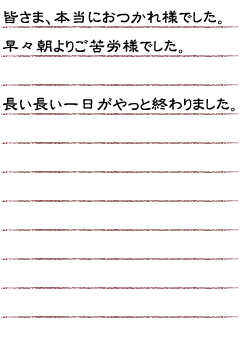 皆さま、本当におつかれ様でした。
早々朝よりご苦労様でした。
長い長い一日がやっと終わりました。